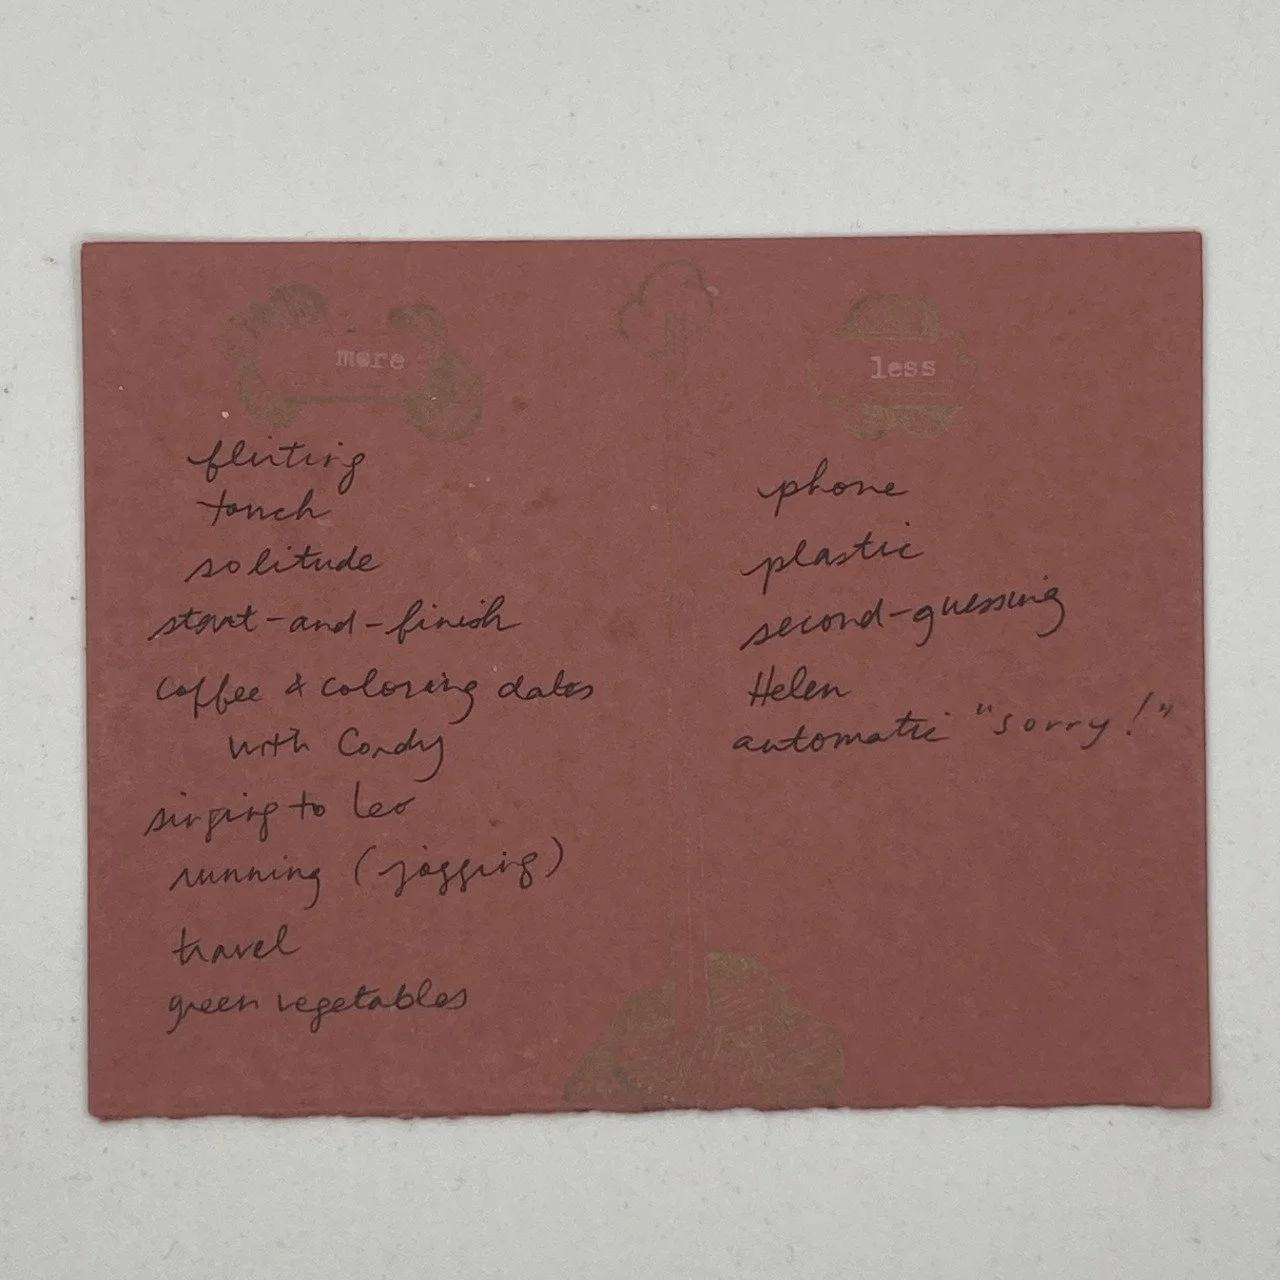 more
flirting
touch
solitude
start-and-finish
coffee & coloring dates
with Cordy
singing to Leo
running (jogging)
travel
green vegetables
less
phone
plastic
second-guessing
Helen
automatic "sorry!"